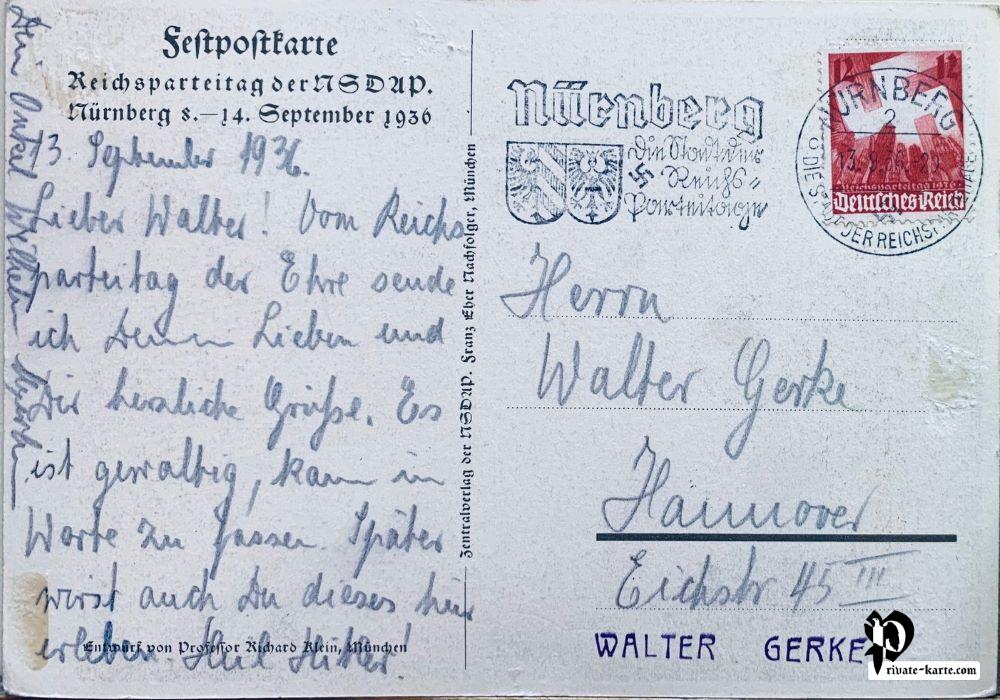 Festpostkarte
Reichsparteitag der NSDAP.
Nürnberg 8.–14. September 1936
13. September 1936.
Lieber Walter! Vom Reichs
parteitag der Ehre sende
ich Deinen Lieben und
Dir herzliche Grüße. Es
ist gewaltig, kaum in
Worte zu fassen. Später
wirst auch Du dieses hier
erleben. Heil Hitler!
Dein Onkel Wilhelm
Entwurf von Professor Richard Klein, München
Zentralverlag der NSDAP. Franz Eher Nachfolger, München
Nürnberg
Die Stadt der
Reichs-
Parteitage
NÜRNBERG
2
13.9.36
DIE STADT DER REICHSPARTEITAGE
12 12
Reichsparteitag 1936
Deutsches Reich
Herrn
Walter Gerke
Hannover
Eichstr 45 III
WALTER GERKE
Private-karte.com